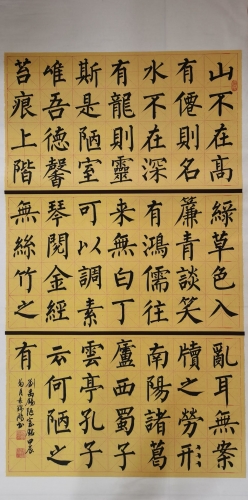 山不在高
有僊則名
水不在深
有龍則靈
斯是陋室
唯吾德馨
苔痕上階
綠草色入
簾青談笑
有鴻儒往
来無白丁
可以調素
琴閱金經
無絲竹之
亂耳無案
牘之勞形
南陽諸葛
廬西蜀子
雲亭孔子
云何陋之
有
劉禹錫陋室銘甲辰
菊月